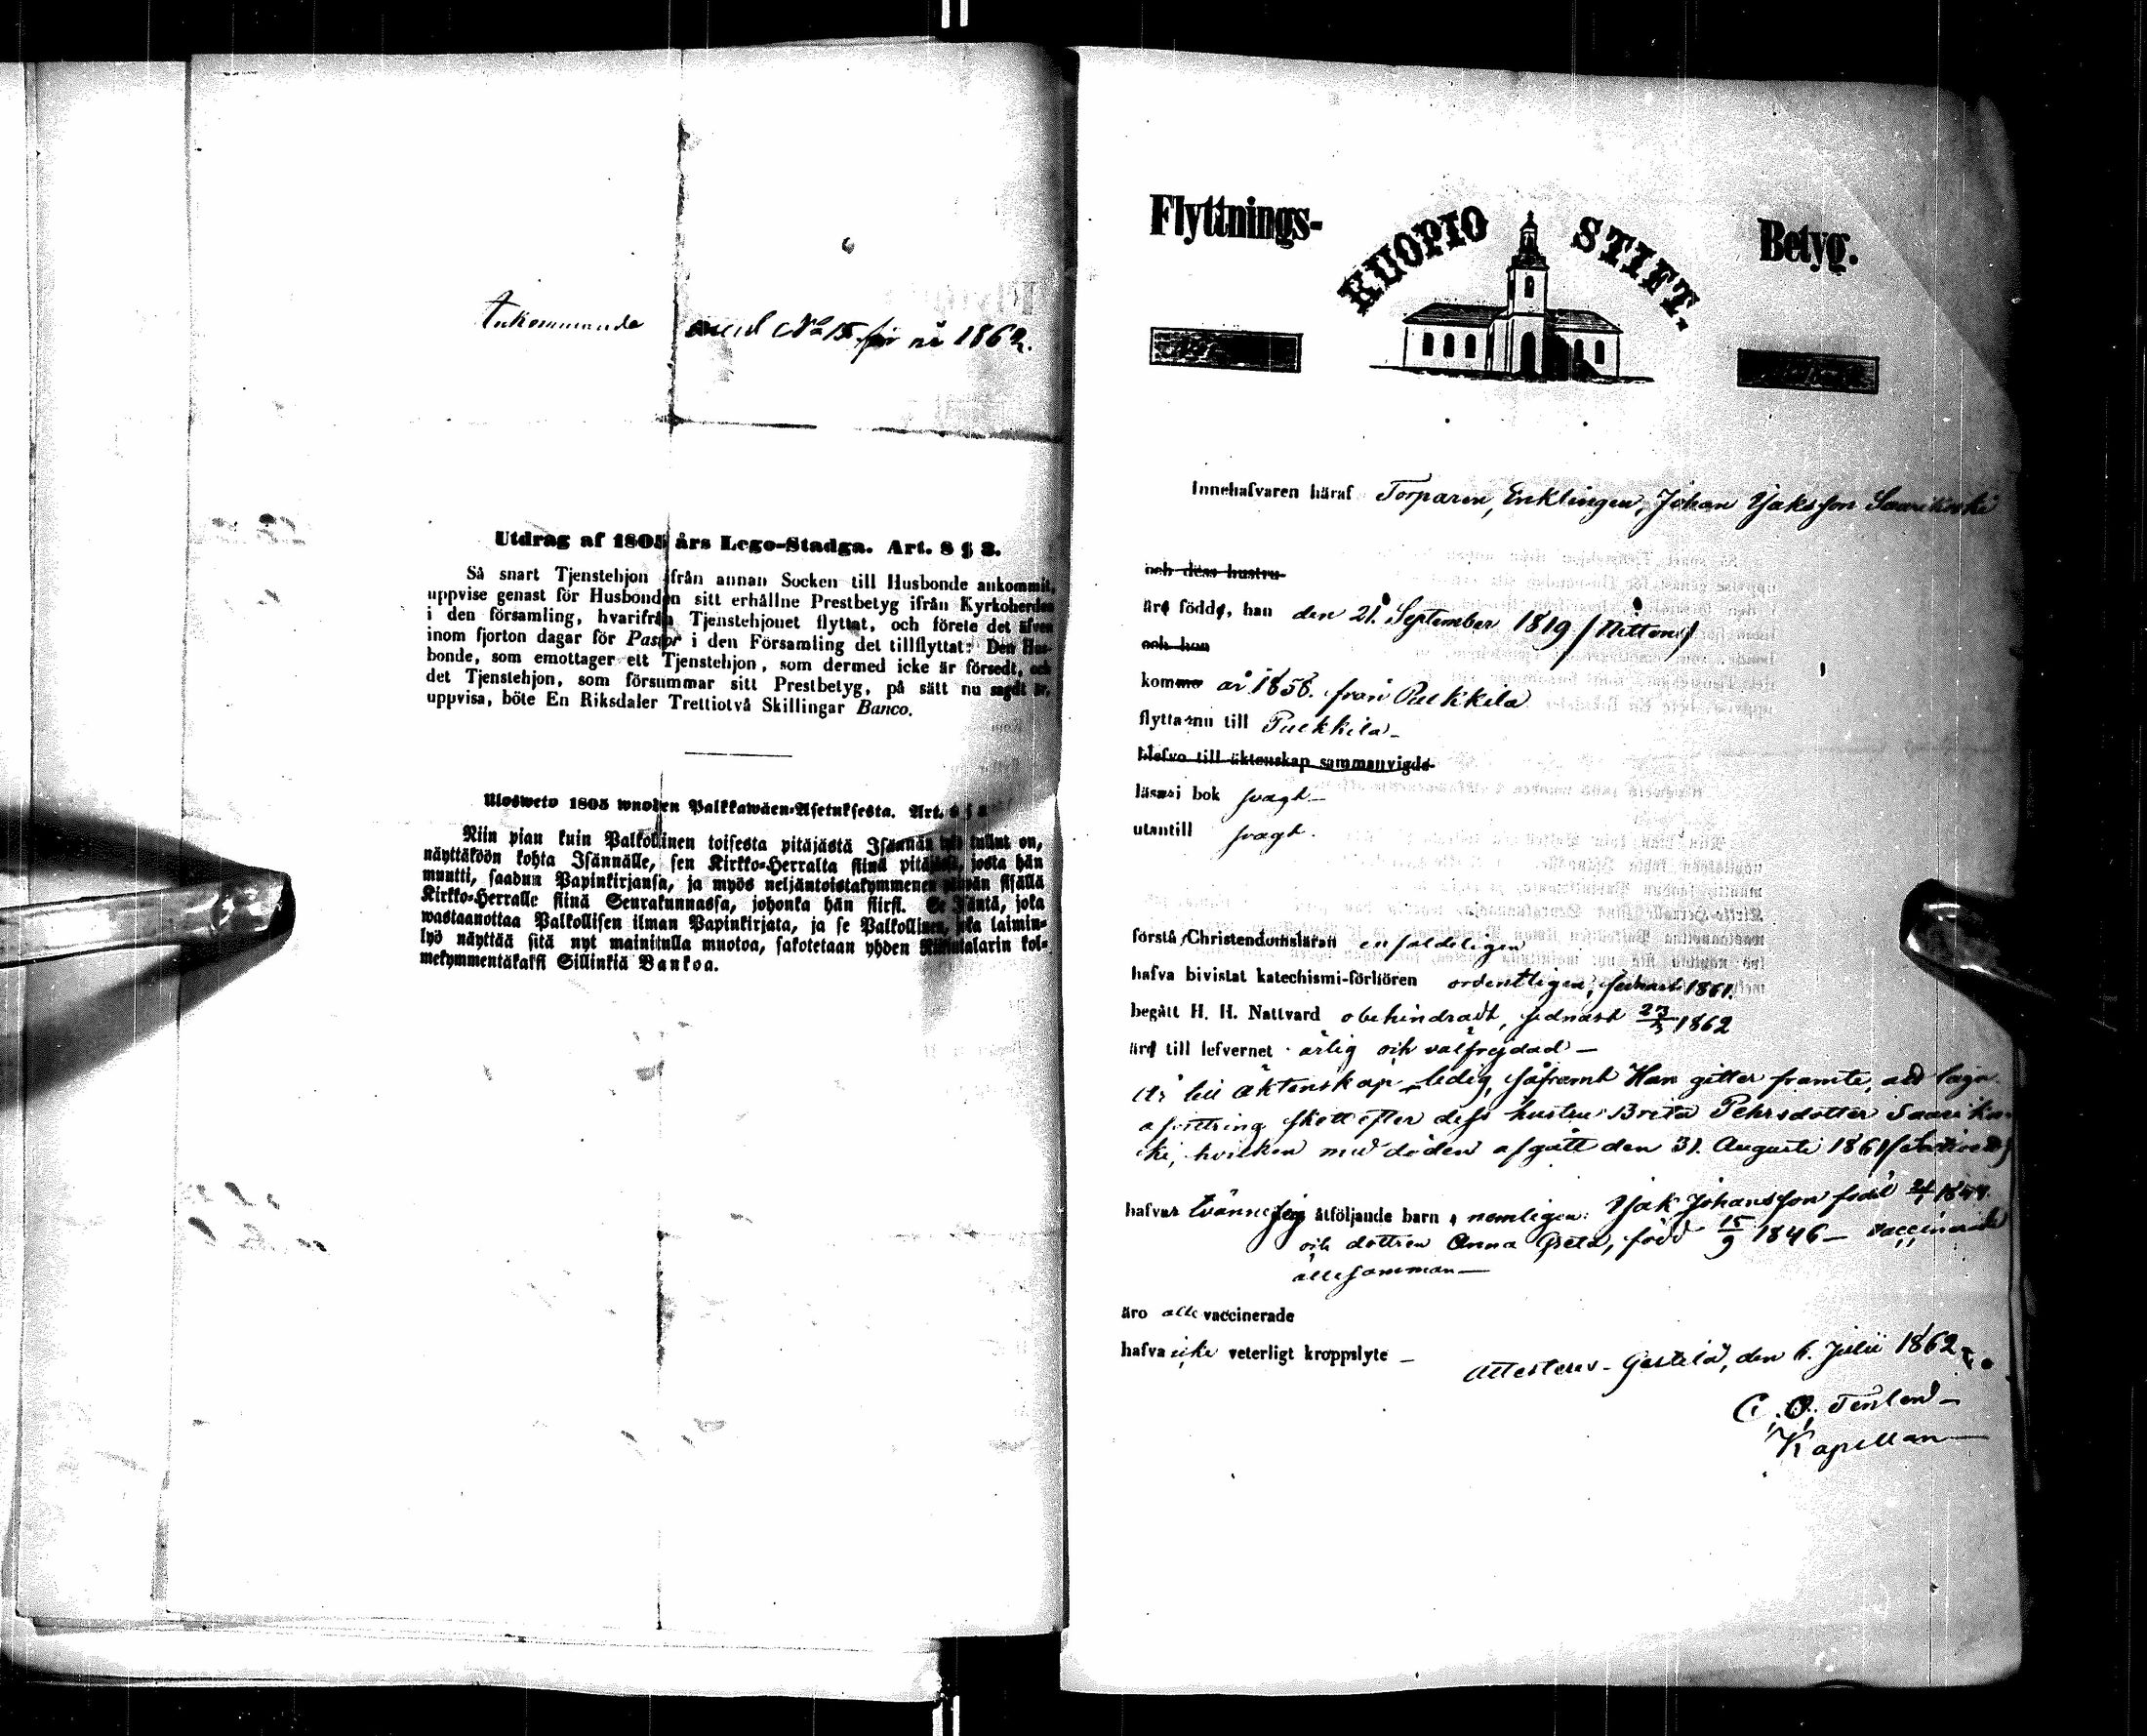 Ankommande med No 15 för år 1862.
Utdrag af 1805 års Lego-Stadga. Art. 8 § 3.
Så snart Tjenstehjon ifrån annan Socken till Husbonde ankommit,
uppvise genast för Husbonden sitt erhållne Prestbetyg ifrån Kyrkoherden
i den församling, hvarifrån Tjenstehjonet flyttat, och förete det äfven
inom fjorton dagar för Pastor i den Församling det tillflyttat: Den Hus-
bonde, som emottager ett Tjenstehjon, som dermed icke är försedt, och
det Tjenstehjon, som försummar sitt Prestbetyg, på sätt nu sagdt är,
uppvisa, böte En Riksdaler Trettiotvå Skillingar Banco.
Ulosweto 1805 wuoden Palkkawäen-Asetuksesta. Art.
Niin pian kuin Palkollinen toisesta pitäjästä Isännän tullut on,
näyttäköön kohta Isännälle, sen Kirkko-Herralta siinä pitäjässä, josta hän
muutti, saadun Papinkirjansa, ja myös neljäntoistakymmenen päivän sisällä
Kirkko-Herralle siinä Seurakunnassa, johonka hän siirsi. Se Isäntä, joka
wastaanottaa Palkollisen ilman Papinkirjata, ja se Palkollinen, joka laimin-
lyö näyttää sitä nyt mainitulla muotoa, sakotetaan yhden Riksitalarin kol-
mekymmentäkaksi Sillinkiä Bankoa.
Flyttnings- KUOPIO STIFT. Betyg.
Innehafvaren häraf Torparen, Enklingen, Johan Isaksson Saarikoski
och dess hustru
äro födde, han den 21. September 1819 (Nitton)
och hon
komme år 1858. från Pulkkila
flytta nu till Pulkkila
blefvo till äktenskap sammanvigde
läsa i bok svagt
utantill svagt.
förstå Christendomsläran enfaldeligen
hafva bivistat katechismi-förhören ordentligen, sednast 1861.
begått H. H. Nattvard obehindradt, sednast 23/3 1862
äro till lefvernet ärlig och välfrejdad
Är till äktenskap ledig, såframt Han gitter framte, att laga
afvittring skett efter dess hustru Brita Pehrsdotter Saarikos-
ki, hvilken med döden afgått den 31. Augusti 1861
hafva tvänne sig åtföljande barn, nemligen: Isak Johansson född
och dottren Anna Greta, född 15/9 1846 vaccinerade
allesamman
äro alla vaccinerade
hafva icke veterligt kroppslyte
Attesterar Gestilä, den 6. Julii 1862.
Kapellan